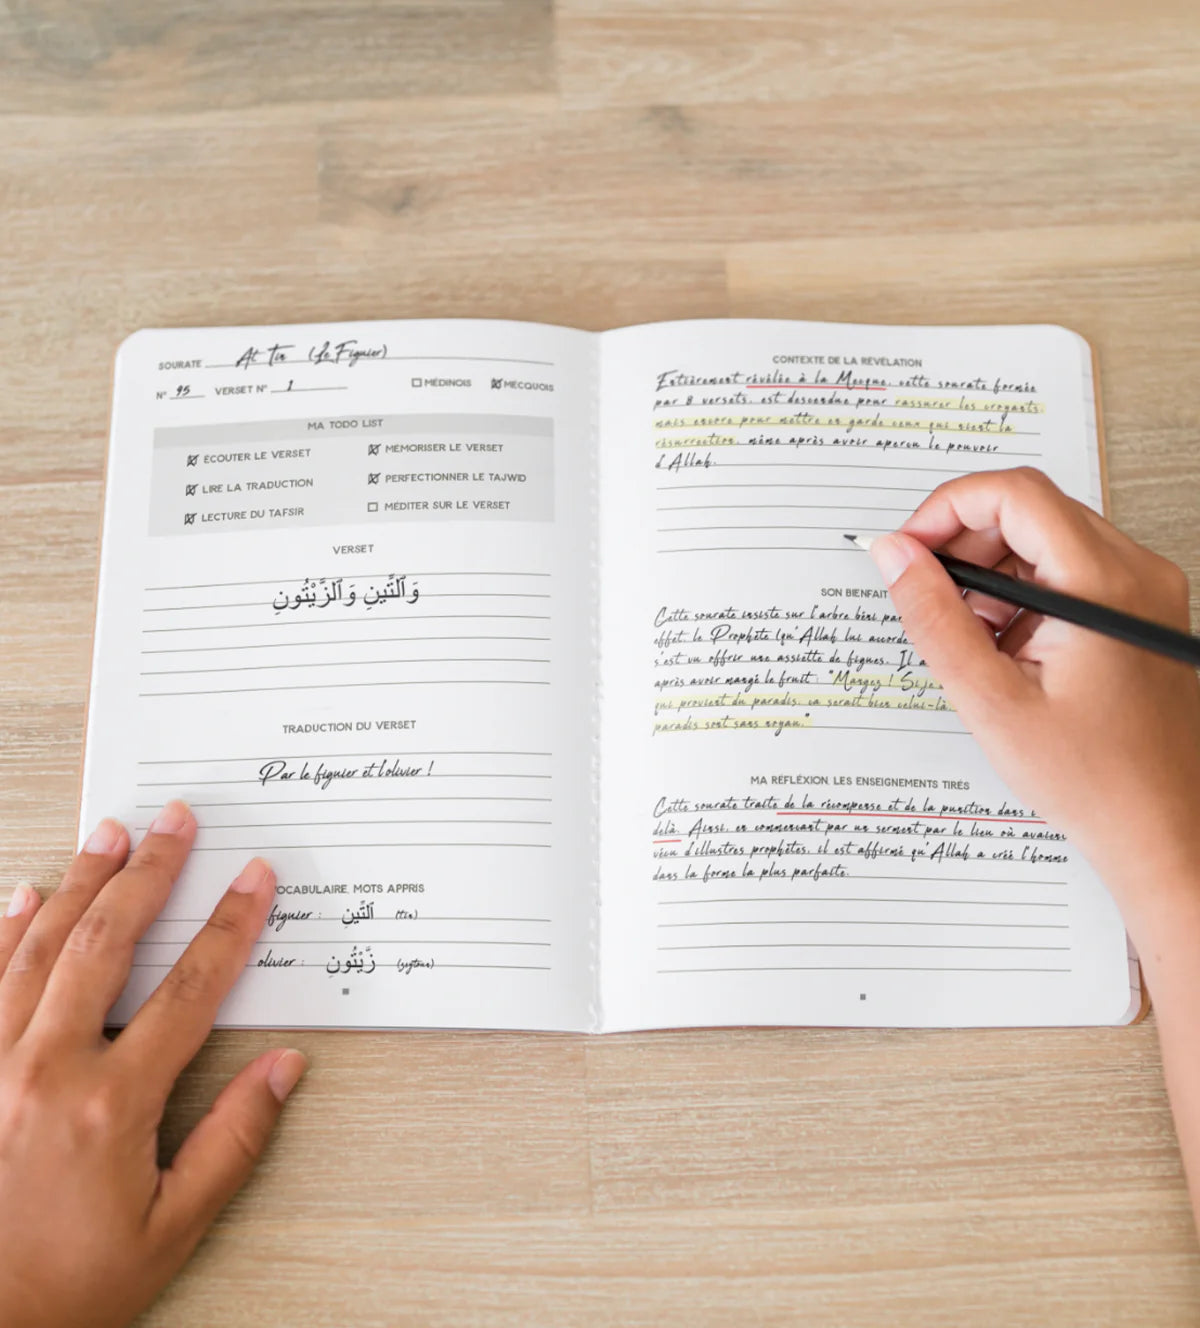 SOURATE At Tin (Le Figuier)
N° 95 VERSET N° 1 MÉDINOIS MECQUOIS
MA TODO LIST
ÉCOUTER LE VERSET MÉMORISER LE VERSET
LIRE LA TRADUCTION PERFECTIONNER LE TAJWID
LECTURE DU TAFSIR MÉDITER SUR LE VERSET
VERSET
وَٱلتِّينِ وَٱلزَّيْتُونِ
TRADUCTION DU VERSET
Par le figuier et l'olivier !
VOCABULAIRE, MOTS APPRIS
figuier : ٱلتِّينِ (tin)
olivier : زَّيْتُونِ (zeytoun)
CONTEXTE DE LA RÉVÉLATION
Entièrement révélée à la Mecque, cette sourate formée
par 8 versets, est descendue pour rassurer les croyants,
mais encore pour mettre en garde ceux qui nient la
résurrection, même après avoir aperçu le pouvoir
d'Allah.
SON BIENFAIT
Cette sourate insiste sur l'arbre béni par
effet, le Prophète (qu'Allah lui accorde
s'est vu offrir une assiette de figues. Il a
après avoir mangé le fruit : "Mangez ! Si je
qui provient du paradis, ça serait bien celui-là,
paradis sont sans noyau."
MA RÉFLÉXION, LES ENSEIGNEMENTS TIRÉS
Cette sourate traite de la récompense et de la punition dans
delà. Ainsi, en commençant par un serment par le lieu où avaient
vécu d'illustres prophètes, il est affirmé qu'Allah a créé l'homme
dans la forme la plus parfaite.